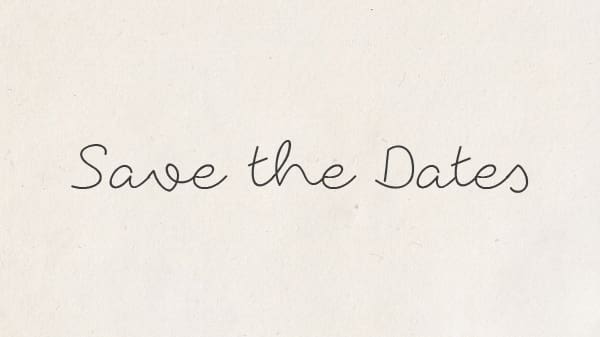 Save the Dates